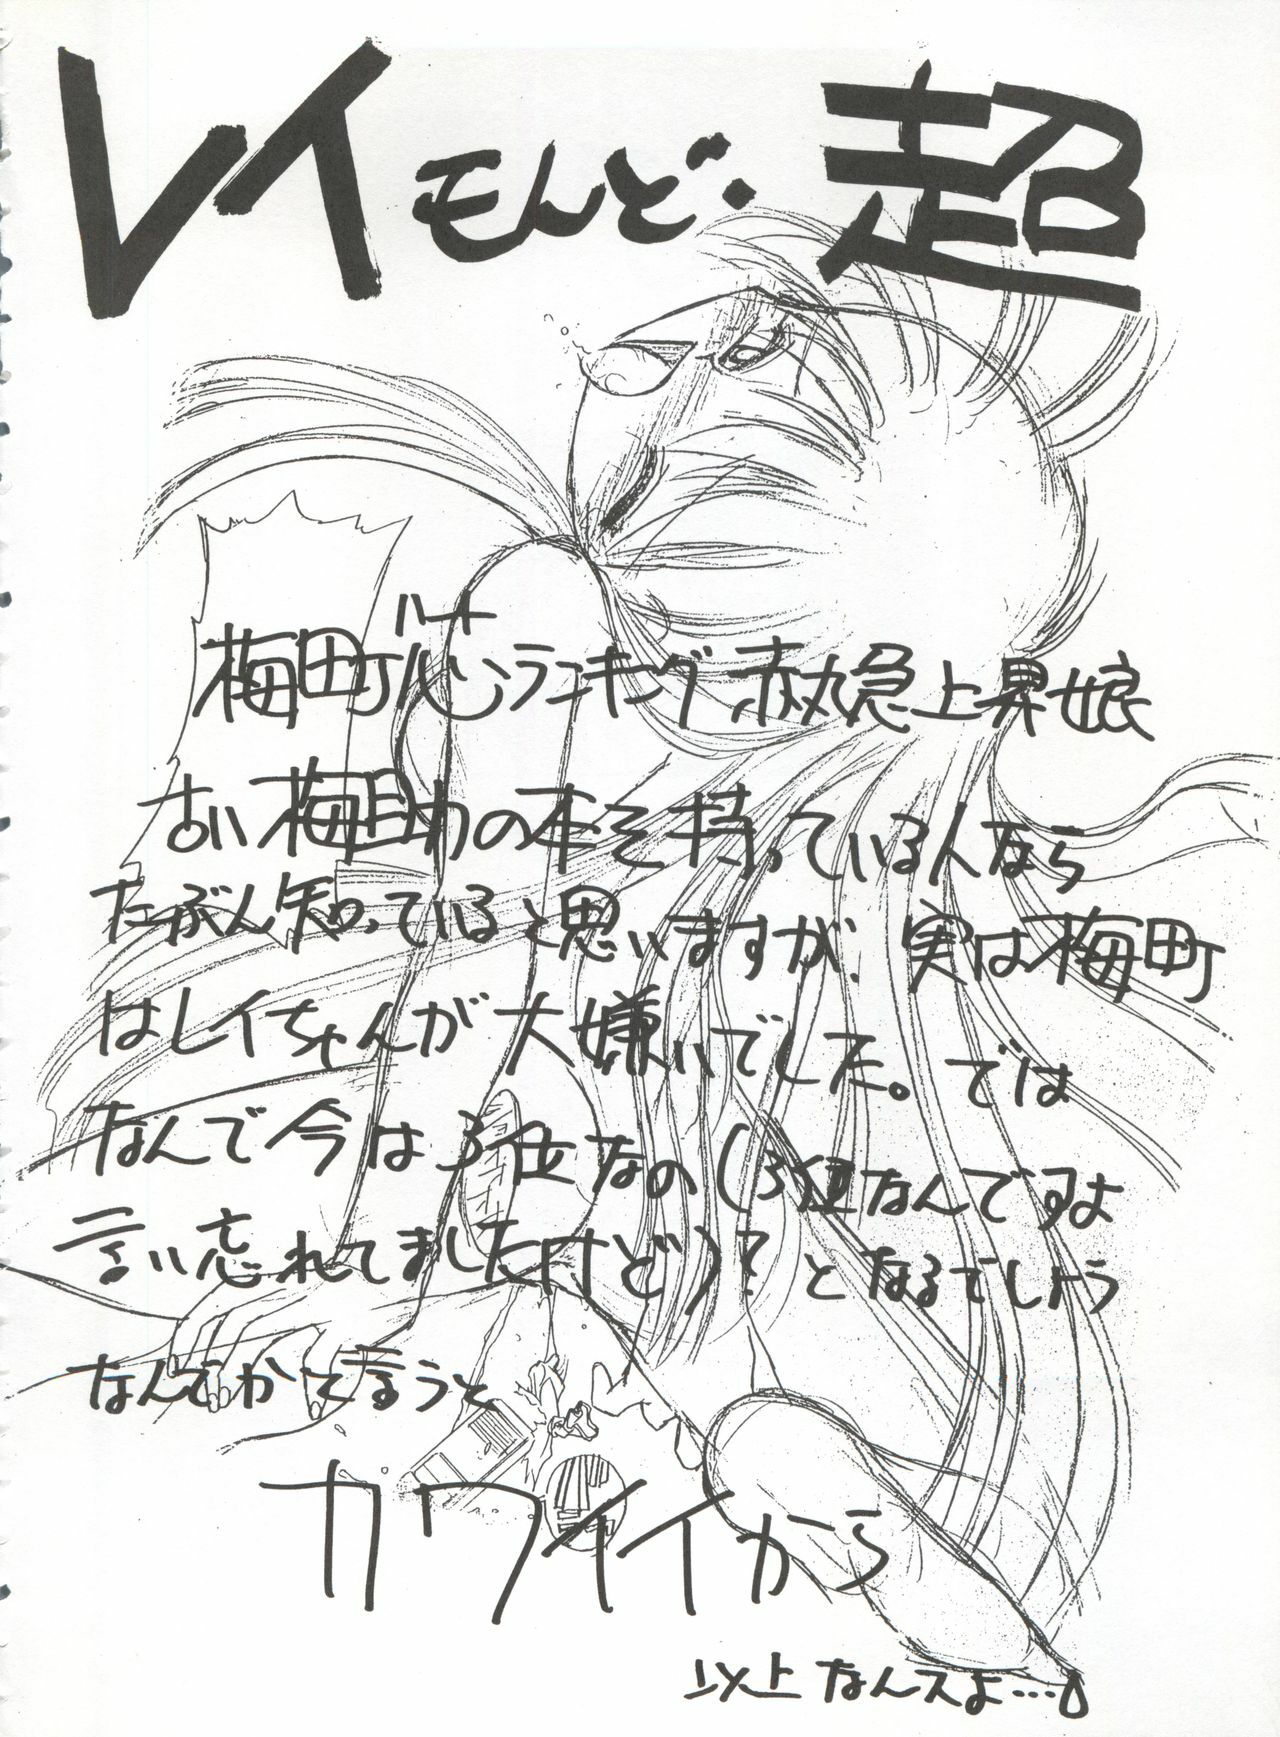 レイもんど・超
梅町ハート心ランキング赤丸急上昇娘
古い梅助の本を持っている人なら
たぶん知っていると思いますが、実は梅町
はレイちゃんが大嫌いでした。では
なんで今は3位なの(3位なんですよ
言い忘れてましたけど)?となるでしょう
なんでかて言うと
カワイイから
以上なんスよ…。